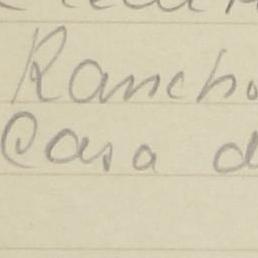 Rancho
Casa d